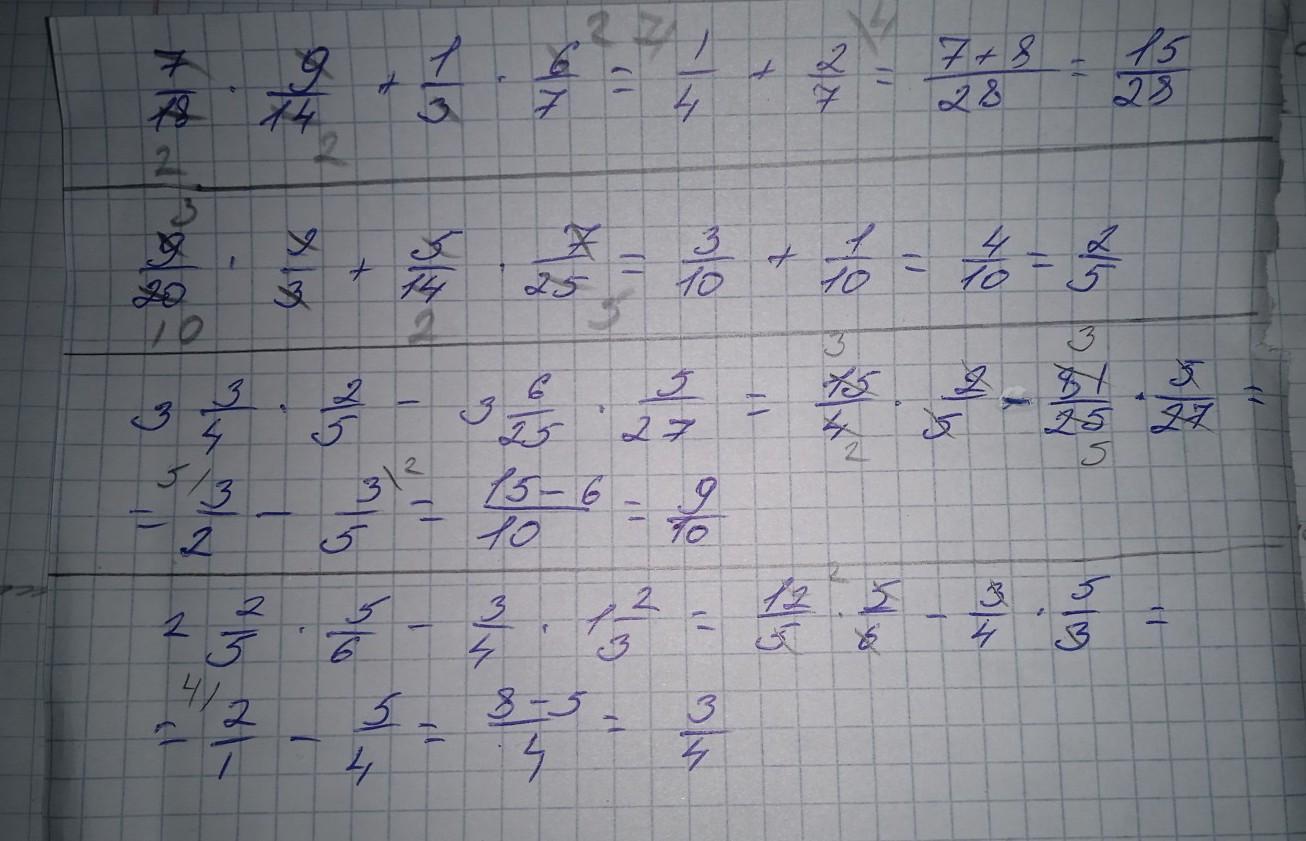 7/18 · 9/14 + 1/3 · 6/7 = 1/4 + 2/7 = (7+8)/28 = 15/28
9/20 · 2/3 + 5/14 · 7/25 = 3/10 + 1/10 = 4/10 = 2/5
3 3/4 · 2/5 - 3 6/25 · 5/27 = 15/4 · 2/5 - 81/25 · 5/27 =
= 3/2 - 3/5 = (15-6)/10 = 9/10
2 2/5 · 5/6 - 3/4 · 1 2/3 = 12/5 · 5/6 - 3/4 · 5/3 =
= 2/1 - 5/4 = (8-5)/4 = 3/4